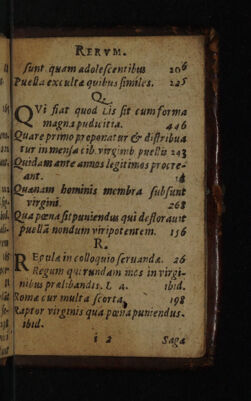 RERVM.
sunt quam adolescentibus 206
Puellæ exculta quibus similes. 225
Q.
QVi fiat quod Lis sit cum forma
magna pudicitia. 446
Quare primo proponatur & distribua
tur in mensa cib. virginib. puellis 243
Quidam ante annos legitimos procre-
ant.
Quænam hominis membra subsunt
virgini. 268
Qua pœna sit puniendus qui deflorauit
puellã nondum viripotentem. 156
R.
REpulæ in colloquio seruanda. 26
Regum quorundam mos in virgi-
nibus prælibandis. L 4. ibid.
Romæ cur multa scorta. 198
Raptor virginis qua pœna puniendus.
ibid.
i 2 Saga